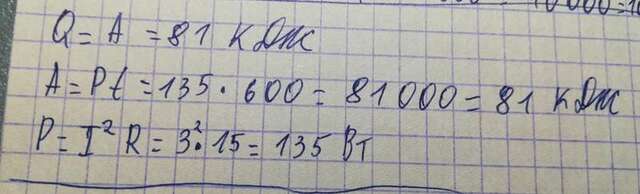 Q = A = 81 кДж
A = Pt = 135 · 600 = 81000 = 81 кДж
P = I² R = 3² · 15 = 135 Вт